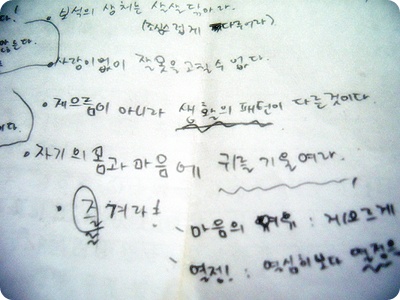 • 보석의 상처는 살살 닦아라.
(조심스럽게 다루어라)
• 사랑이 없이 잘못을 고칠 수 없다.
• 게으름이 아니라 생활의 패턴이 다른 것이다.
• 자기의 몸과 마음에 귀를 기울여라.
• 즐겨라!
마음의 여유 : 게으르게
열정! : 열심히보다 열정을